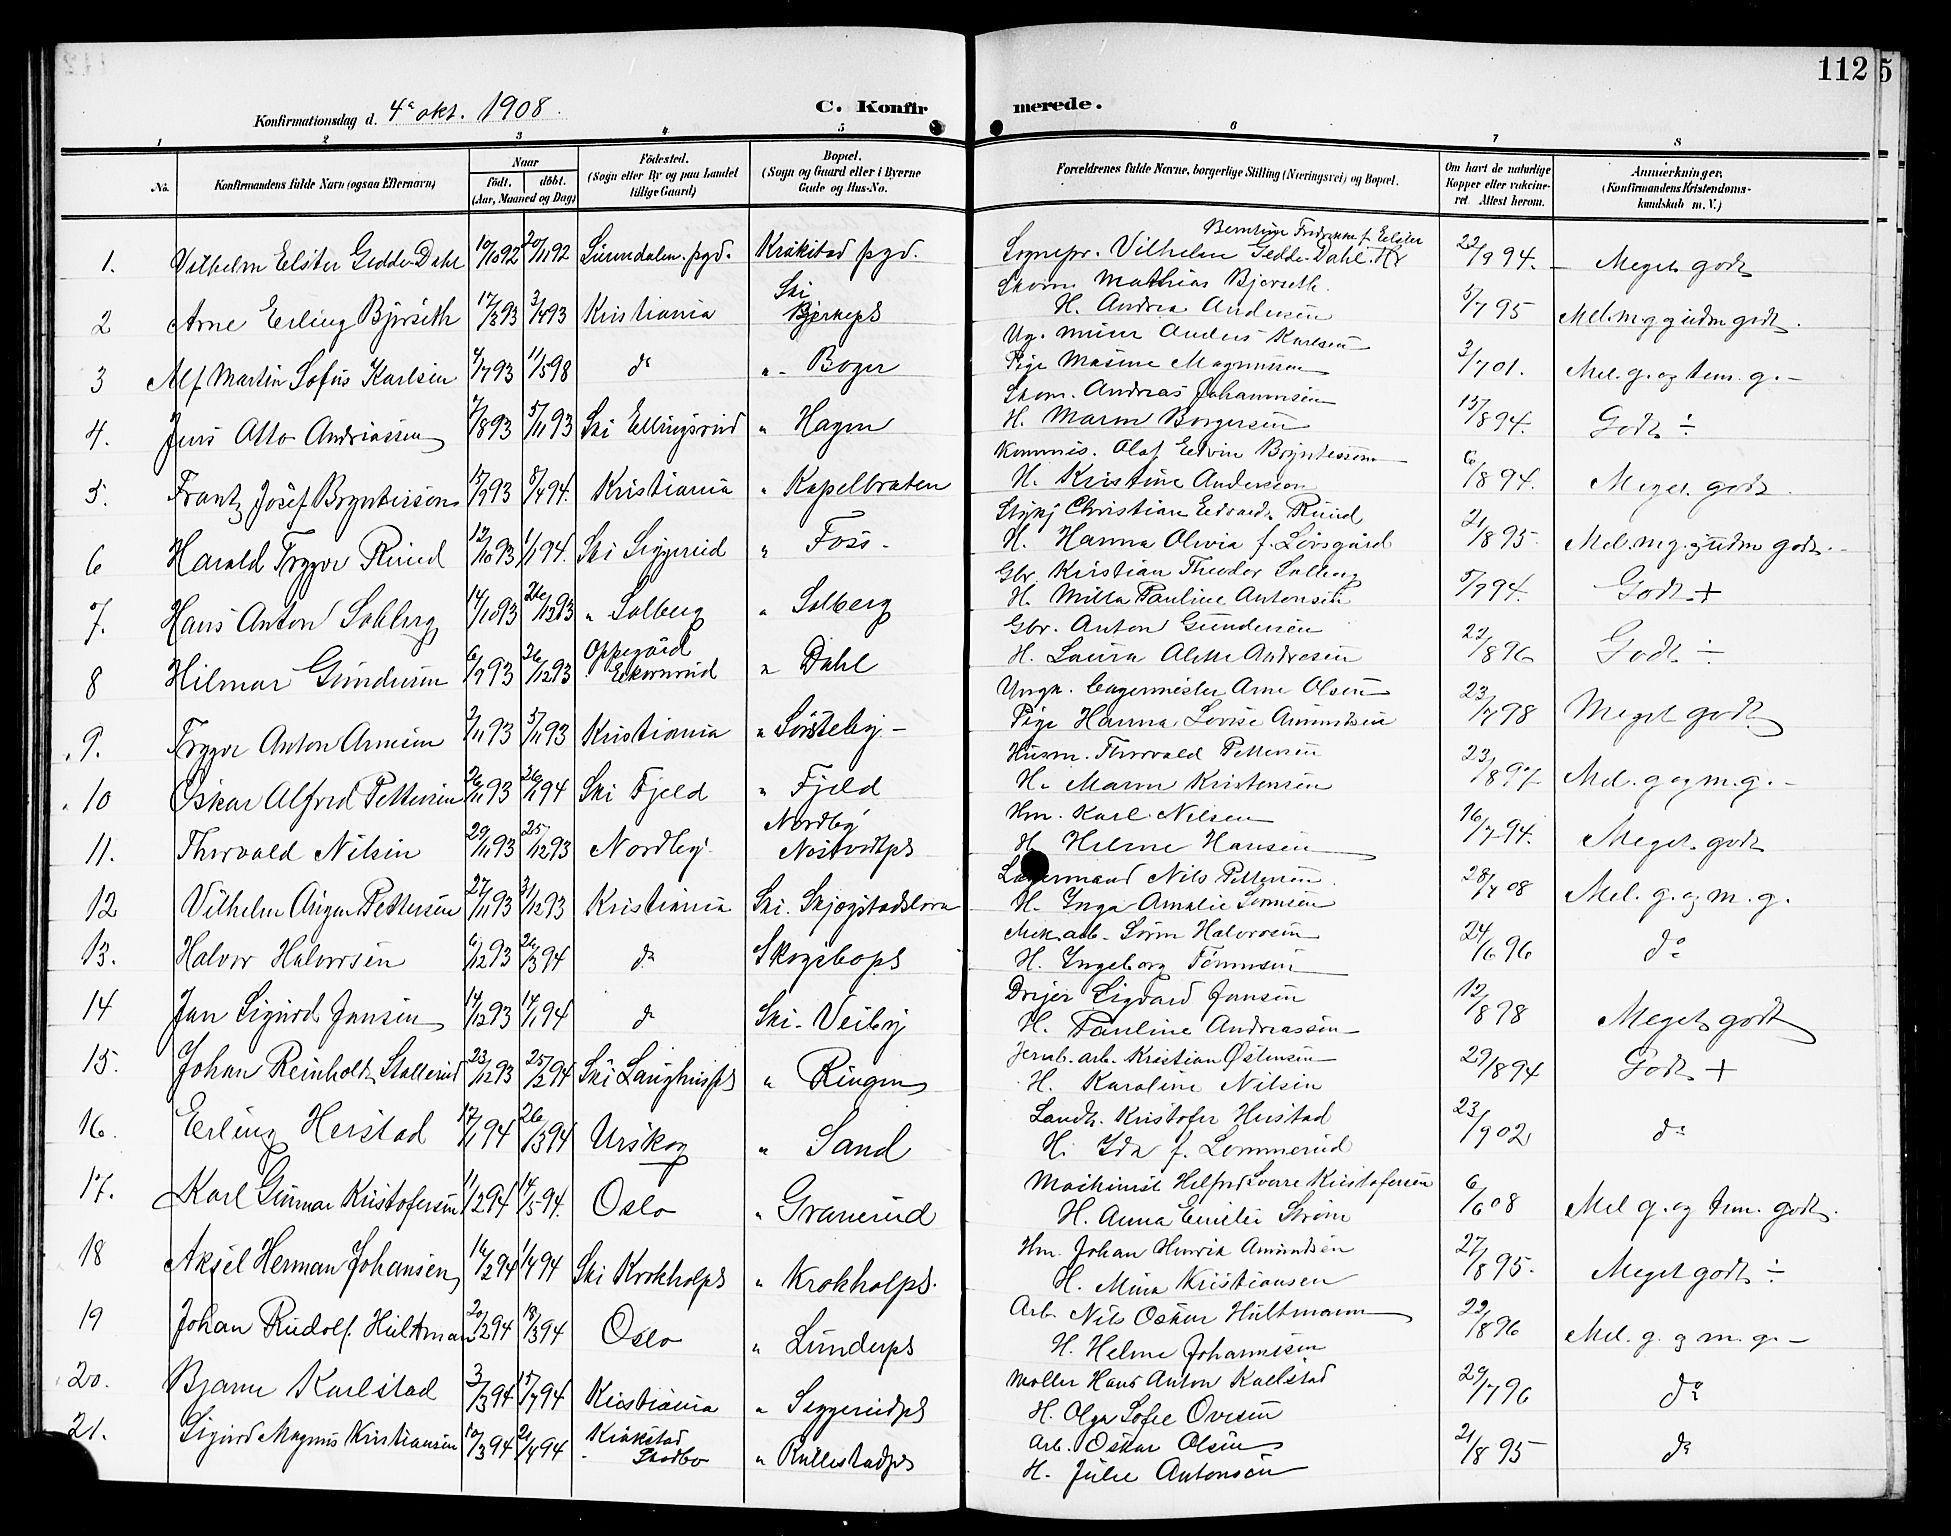 112
5
Konfirmationsdag d. 4de okt. 1908.
C. Konfirmerede.
1 2 3 4 5 6 7 8
No.
Konfirmandens fulde Navn (ogsaa Efternavn)
Naar
födt. döbt.
(Aar, Maaned og Dag)
Födested.
(Sogn eller By og paa Landet
tillige Gaard)
Bopæl.
(Sogn og Gaard eller i Byerne
Gade og Hus-No.
Forældrenes fulde Navne, borgerlige Stilling (Næringsvei) og Bopæl.
Om havt de naturlige
Kopper eller vakcine-
ret. Attest herom.
Anmærkninger,
(Konfirmandens Kristendoms-
kundskab m. V.)
Berntine Fredrikke f. Elster
1. Vilhelm Elster Gedde-Dahl 10/10 92 20/11 92 Surendalen pgd. Kråkstad pgd. Sognepr. Vilhelm Gedde-Dahl. H 22/9 94. Meget godt
Skom. Mathias Bjerseth.
2 Arne Erling Björseth 17/3 93 3/4 93 Kristiania Ski Bjerkeps H. Andrea Andersen 5/7 95 Mel. m.g. og udm godt.
Ug. murer Anders Karlsen
3 Alf Martin Sofus Karlsen 4/7 93 11/5 98 do " Boger Pige Masine Magnussen 3/7 01. Mel. g. og tem. g. -
Skom. Andreas Johannesen
4. Jens Otto Andreassen 7/8 93 5/11 93 Ski Ellingsrud " Hagen H. Maren Borgersen 15/8 94. Godt ÷
Kommis. Olaf Edvin Bryntesson
5. Frantz Josef Bryntesson 15/9 93 8/4 94. Kristiania " Kapelbraten H. Kristine Andersson 6/8 94. Meget godt
Christian Edvards Ruud
6 Harald Trygve Ruud 12/10 93 1/1 94. Ski Siggerud " Foss - H. Hanna Olivia f. Lövsgård 21/8 95. Mel. m.g. og udm godt. -
Gbr. Kristian Theodor Solberg
7. Hans Anton Solberg 14/10 93 26/12 93 " Solberg " Solberg H. Milla Pauline Antonsen 5/7 94. Godt +
Gbr. Anton Gundersen
8 Hilmar Gundersen 6/9 93 26/12 93 Oppegård Ekornrud " Dahl H. Laura Alette Andresen 22/8 96 Godt ÷
Ungk. Bagermester Arne Olsen
9. Trygve Anton Arnesen 2/11 93 5/11 93 Kristiania " Sörsteby - Pige Hanna Lovise Amundsen 23/7 98 Meget godt
Husm. Thorvald Pettersen
10 Oskar Alfred Pettersen 26/11 93 26/1 94 Ski Fjeld " Fjeld H. Maren Kristensen 23/8 97. Mel. g. og m. g. -
Hm. Karl Nilsen
11. Thorvald Nilsen 29/11 93 25/12 93 Nordby Nordby Nöstvedtps H. Helene Hansen 16/7 94. Meget godt
Lagermand Nils Pettersen
12 Vilhelm Birger Pettersen 27/11 93 31/12 93 Kristiania Ski. Skjegstadslora H. Inga Amalie Sörensen 28/7 08 Mel. g. og m. g.
Mek. arb. Sören Halvorsen
13. Halvor Halvorsen 6/12 93 26/3 94 do Skogsbops H. Ingeborg Tönnesen 24/6 96 do
Drejer Sigvard Jansen
14 Jan Sigurd Jansen 14/12 93 14/1 94 do Ski - Veiby H. Pauline Andreassen - 12/8 98 Meget godt
Jernb. arb. Kristian Østensen
15. Johan Reinholdt Stallerud 23/12 93 25/2 94 Ski Langhusps " Ringen H. Karoline Nilsen 29/8 94 Godt +
Landh. Kristofer Herstad
16. Erling Herstad 17/1 94 26/3 94 Urskog " Sand H. Ida f. Lommerud 23/9 02 do
Maskinist Helfred Sverre Kristofersen
17. Karl Gunnar Kristofersen 11/2 94 14/5 94. Oslo " Granerud H. Anna Emilie Strøm 6/6 08 Mel g. og tem. godt.
Hm. Johan Henrik Amundsen
18 Aksel Herman Johansen 16/2 94 1/4 94 Ski Krokholps " Krokholps. H. Mina Kristiansen 27/8 95. Meget godt ÷
Arb. Nils Oskar Hultmann
19 Johan Rudolf Hultman 20/2 94 18/3 94 Oslo " Lunderps H. Helene Johannesen 22/8 96 Mel. g. og m. g. -
Møller Hans Anton Karlstad
20. Bjarne Karlstad 3/3 94 15/7 94 Kristiania " Seggerudps H. Olga Sofie Ovesen 29/7 96 do
Arb. Oskar Olsen
21. Sigurd Magnus Kristiansen 10/3 94 21/4 94 Kråkstad Skodbo " Rullestadps H. Julie Antonsen 21/8 95 do